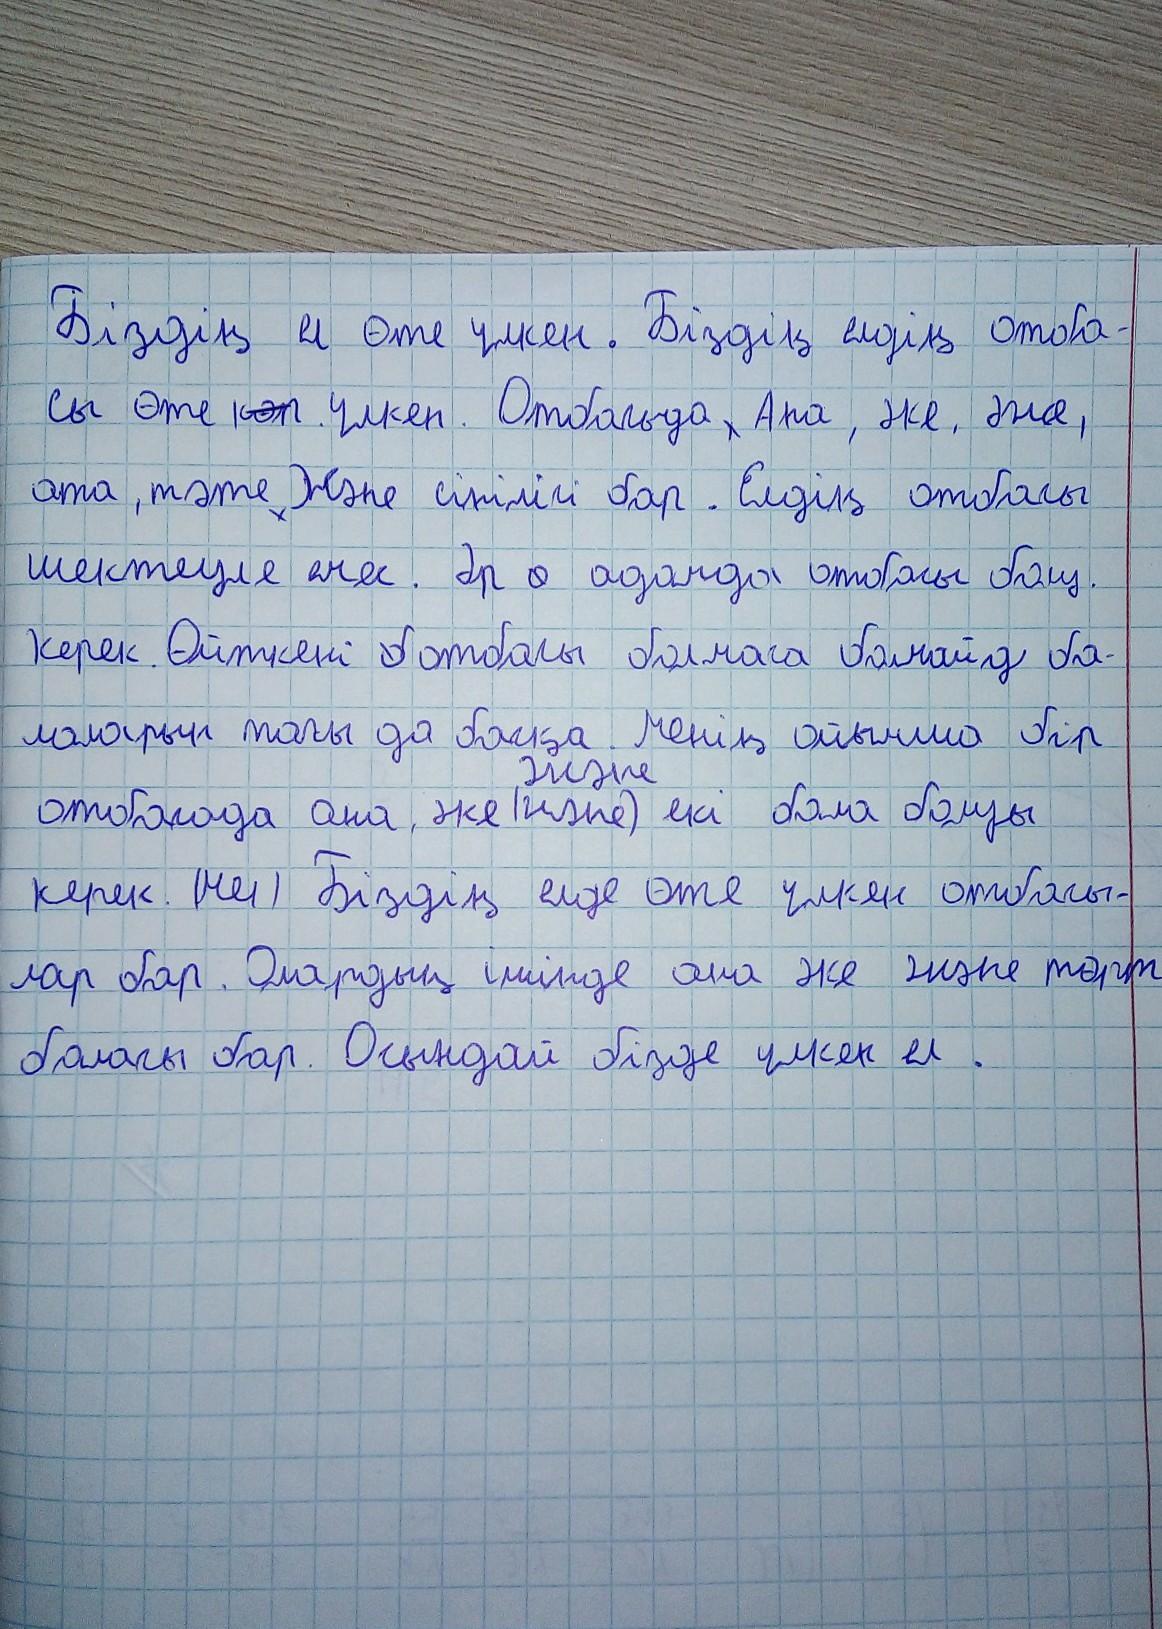 Біздің ел өте үлкен. Біздің елдің отоба-
сы өте көп үлкен. Отбасыда, Ана, әке, әже,
ата, тәте, Және сіңілісі бар. Елдің отбасы
шектеуле емес. Әр адамда отбасы болу.
керек. Өйткені отбасы болмаса болмайд ба-
лаларың тағы да басқа. Менің ойымша бір
және
отобасада ана, әке (және) екі бала болуы
керек. (Мен) Біздің елде өте үлкен отбасы-
лар бар. Олардың ішінде ана әке және төрт
баласы бар. Осындай бізде үлкен ел.